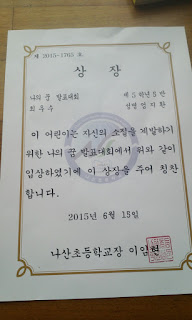 제 2015-1765 호
상 장
나의 꿈 발표대회 제 5 학년 5 반
최우수 성명 엄지환
이 어린이는 자신의 소질을 계발하기
위한 나의 꿈 발표대회에서 위와 같이
입상하였기에 이 상장을 주어 칭찬
합니다.
2015년 6월 15일
나산초등학교장 이임현